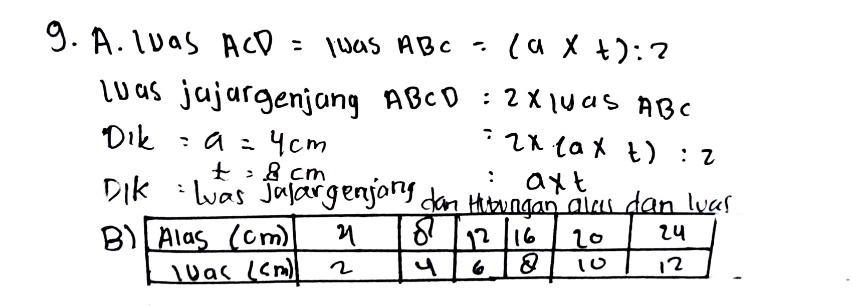 9. A. luas ACD = luas ABC = (a x t) : 2
luas jajargenjang ABCD : 2 x luas ABC
Dik : a = 4cm = 2x (a x t) : 2
t = 8 cm : axt
Dik : luas jajargenjang dan Hubungan alas dan luas
B) Alas (cm) 4 8 12 16 20 24
luas (cm) 2 4 6 8 10 12